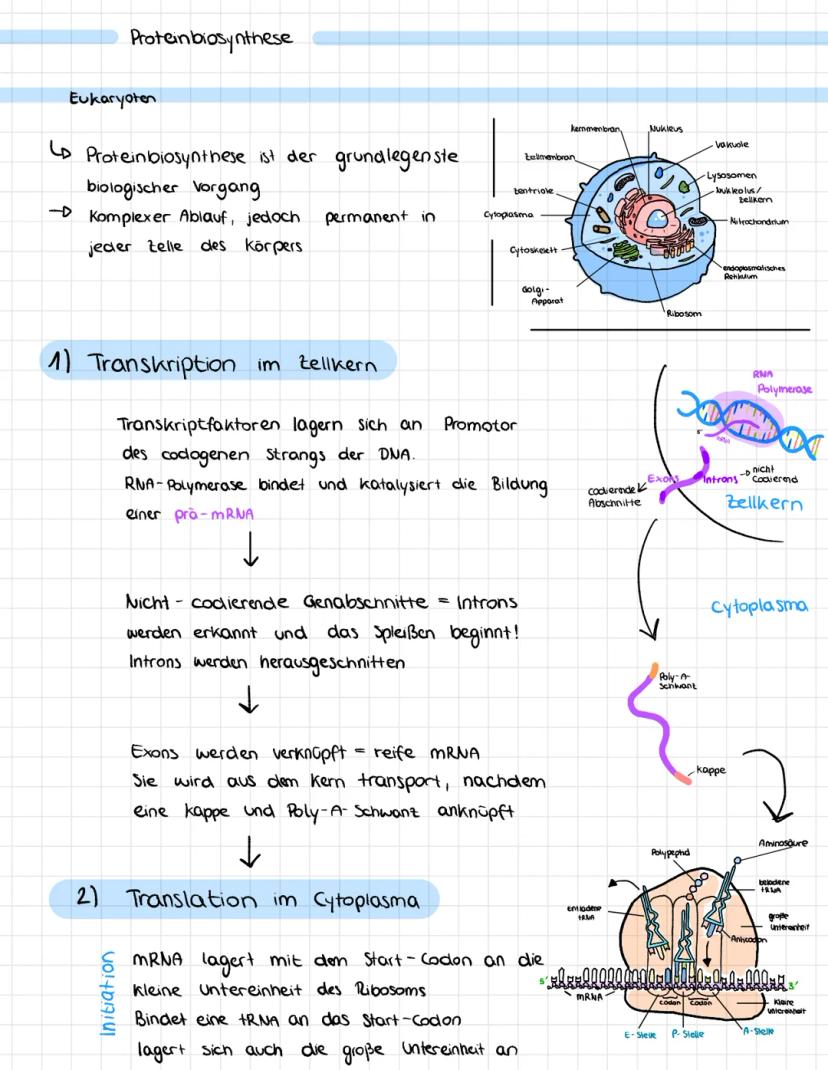 Proteinbiosynthese
Eukaryoten
↳ Proteinbiosynthese ist der grundlegenste
biologischer Vorgang
→ Komplexer Ablauf, jedoch permanent in
jeder Zelle des Körpers
Kernmembran
Nukleus
Vakuole
Zellmembran
Lysosomen
Zentriole
Nukleolus/
Zellkern
Cytoplasma
Mitrochondrium
Cytoskelett
endoplasmatisches
Retikulum
Golgi-
Apparat
Ribosom
1) Transkription im Zellkern
Transkriptfaktoren lagern sich an Promotor
des codogenen Strangs der DNA.
RNA-Polymerase bindet und katalysiert die Bildung
einer prä-mRNA
↓
RNA
Polymerase
5'
mRNA
Exons
Introns → nicht
Codierend
codierende
Abschnitte
Zellkern
Nicht-codierende Genabschnitte = Introns
werden erkannt und das Spleißen beginnt!
Introns werden herausgeschnitten
↓
Cytoplasma
Exons werden verknüpft = reife mRNA
Sie wird aus dem Kern transport, nachdem
eine Kappe und Poly-A-Schwanz anknüpft
↓
Poly-A-
Schwanz
Kappe
2) Translation im Cytoplasma
Initiation
mRNA lagert mit dem Start-Codon an die
kleine Untereinheit des Ribosoms
Bindet eine tRNA an das Start-Codon
lagert sich auch die große Untereinheit an
Polypeptid
Aminosäure
beladene
tRNA
Entladene
tRNA
große
Untereinheit
Anticodon
5'
3'
mRNA
Codon
Codon
Kleine
Untereinheit
E-Stelle
P-Stelle
A-Stelle